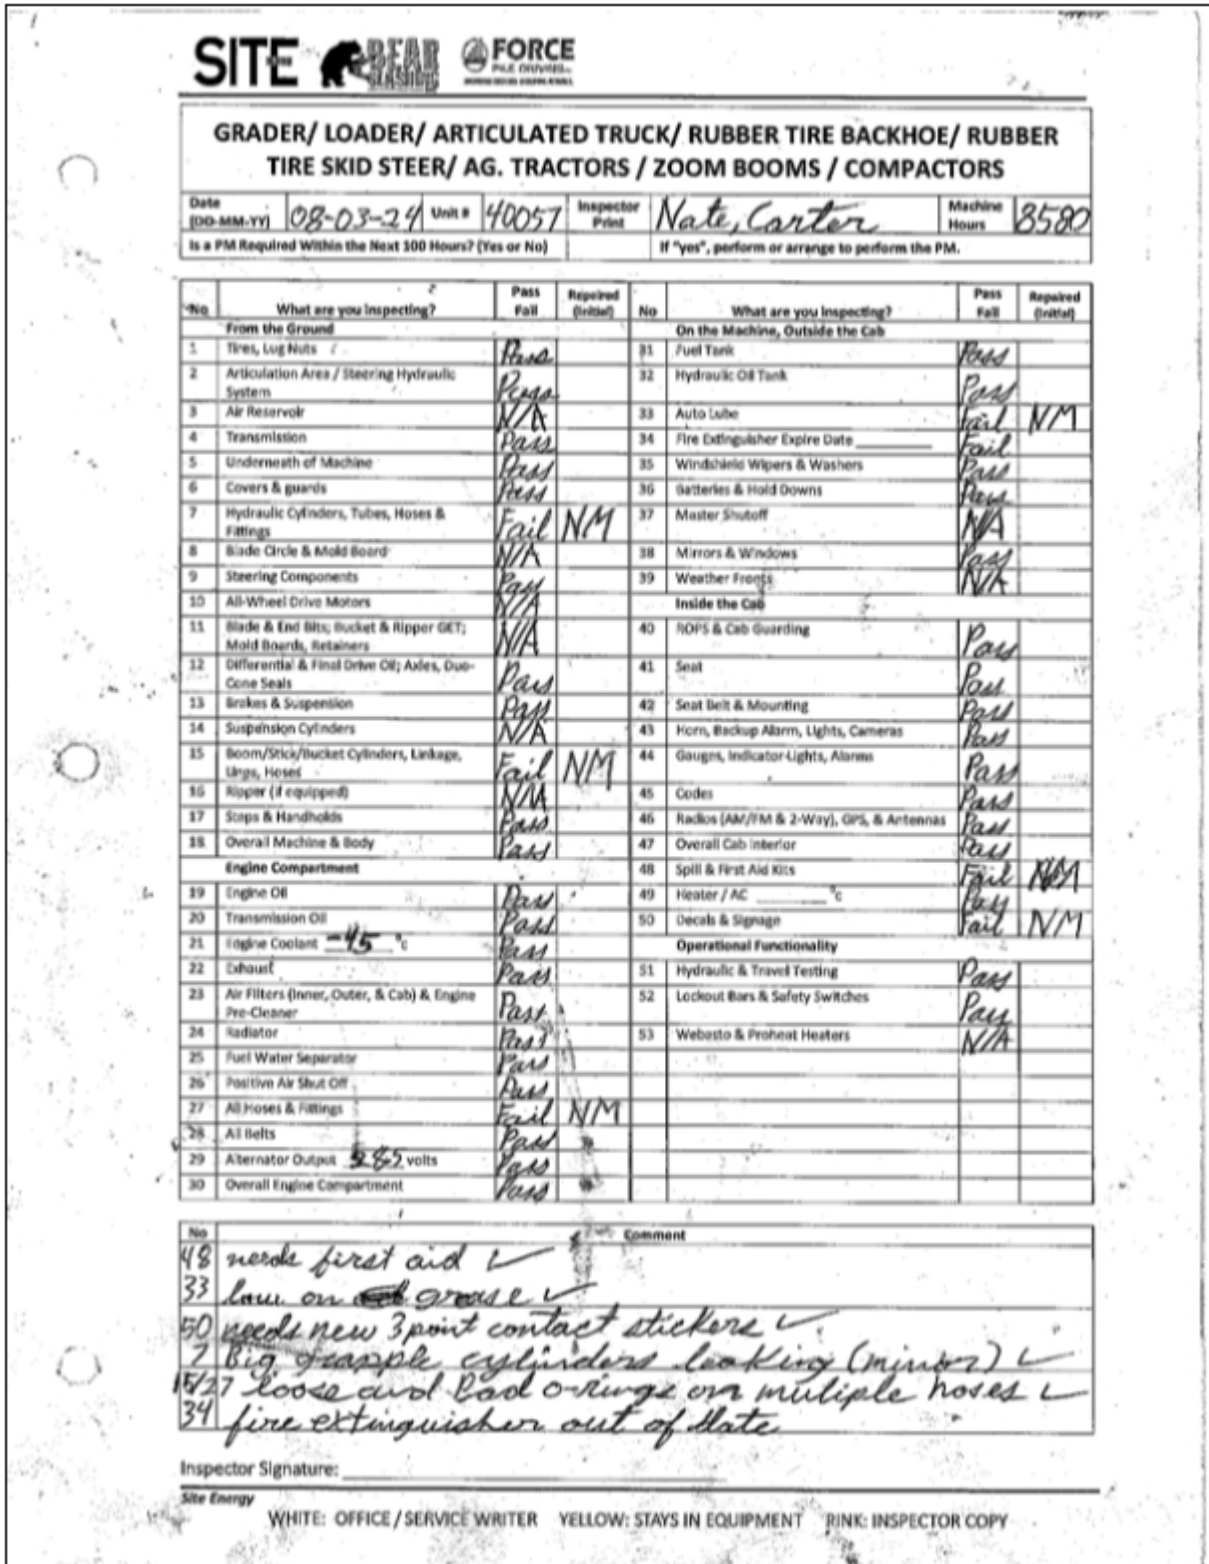 SITE BEAR FORCE
PILE DRIVING INC.
GRADER/ LOADER/ ARTICULATED TRUCK/ RUBBER TIRE BACKHOE/ RUBBER
TIRE SKID STEER/ AG. TRACTORS / ZOOM BOOMS / COMPACTORS
Date (DD-MM-YY) 08-03-24 Unit # 40057 Inspector Print Nate, Carter Machine Hours 8580
Is a PM Required Within the Next 100 Hours? (Yes or No) If "yes", perform or arrange to perform the PM.
No What are you inspecting? Pass Fail Repaired (Initial)
From the Ground
1 Tires, Lug Nuts Pass
2 Articulation Area / Steering Hydraulic System Pass
3 Air Reservoir N/A
4 Transmission Pass
5 Underneath of Machine Pass
6 Covers & guards Pass
7 Hydraulic Cylinders, Tubes, Hoses & Fittings Fail NM
8 Blade Circle & Mold Board N/A
9 Steering Components Pass
10 All-Wheel Drive Motors N/A
11 Blade & End Bits; Bucket & Ripper GET; Mold Boards, Retainers N/A
12 Differential & Final Drive Oil; Axles, Duo-Cone Seals Pass
13 Brakes & Suspension Pass
14 Suspension Cylinders N/A
15 Boom/Stick/Bucket Cylinders, Linkage, Lines, Hoses Fail NM
16 Ripper (if equipped) N/A
17 Steps & Handholds Pass
18 Overall Machine & Body Pass
Engine Compartment
19 Engine Oil Pass
20 Transmission Oil Pass
21 Engine Coolant -45 °c Pass
22 Exhaust Pass
23 Air Filters (Inner, Outer, & Cab) & Engine Pre-Cleaner Pass
24 Radiator Pass
25 Fuel Water Separator Pass
26 Positive Air Shut Off Pass
27 All Hoses & Fittings Fail NM
28 All Belts Pass
29 Alternator Output volts Pass
30 Overall Engine Compartment Pass
No What are you inspecting? Pass Fail Repaired (Initial)
On the Machine, Outside the Cab
31 Fuel Tank Pass
32 Hydraulic Oil Tank Pass
33 Auto Lube Fail NM
34 Fire Extinguisher Expire Date Fail
35 Windshield Wipers & Washers Pass
36 Batteries & Hold Downs Pass
37 Master Shutoff N/A
38 Mirrors & Windows Pass
39 Weather Fronts N/A
Inside the Cab
40 ROPS & Cab Guarding Pass
41 Seat Pass
42 Seat Belt & Mounting Pass
43 Horn, Backup Alarm, Lights, Cameras Pass
44 Gauges, Indicator Lights, Alarms Pass
45 Codes Pass
46 Radios (AM/FM & 2-Way), GPS, & Antennas Pass
47 Overall Cab Interior Pass
48 Spill & First Aid Kits Fail NM
49 Heater / AC °c Pass
50 Decals & Signage Fail NM
Operational Functionality
51 Hydraulic & Travel Testing Pass
52 Lockout Bars & Safety Switches Pass
53 Webasto & Proheat Heaters N/A
No Comment
48 needs first aid ✓
33 low on grease ✓
50 needs new 3 point contact stickers ✓
7 Big grapple cylinders leaking (minor) ✓
15/27 loose and Bad o-rings on multiple hoses ✓
34 fire extinguisher out of date
Inspector Signature:
Site Energy
WHITE: OFFICE / SERVICE WRITER YELLOW: STAYS IN EQUIPMENT PINK: INSPECTOR COPY